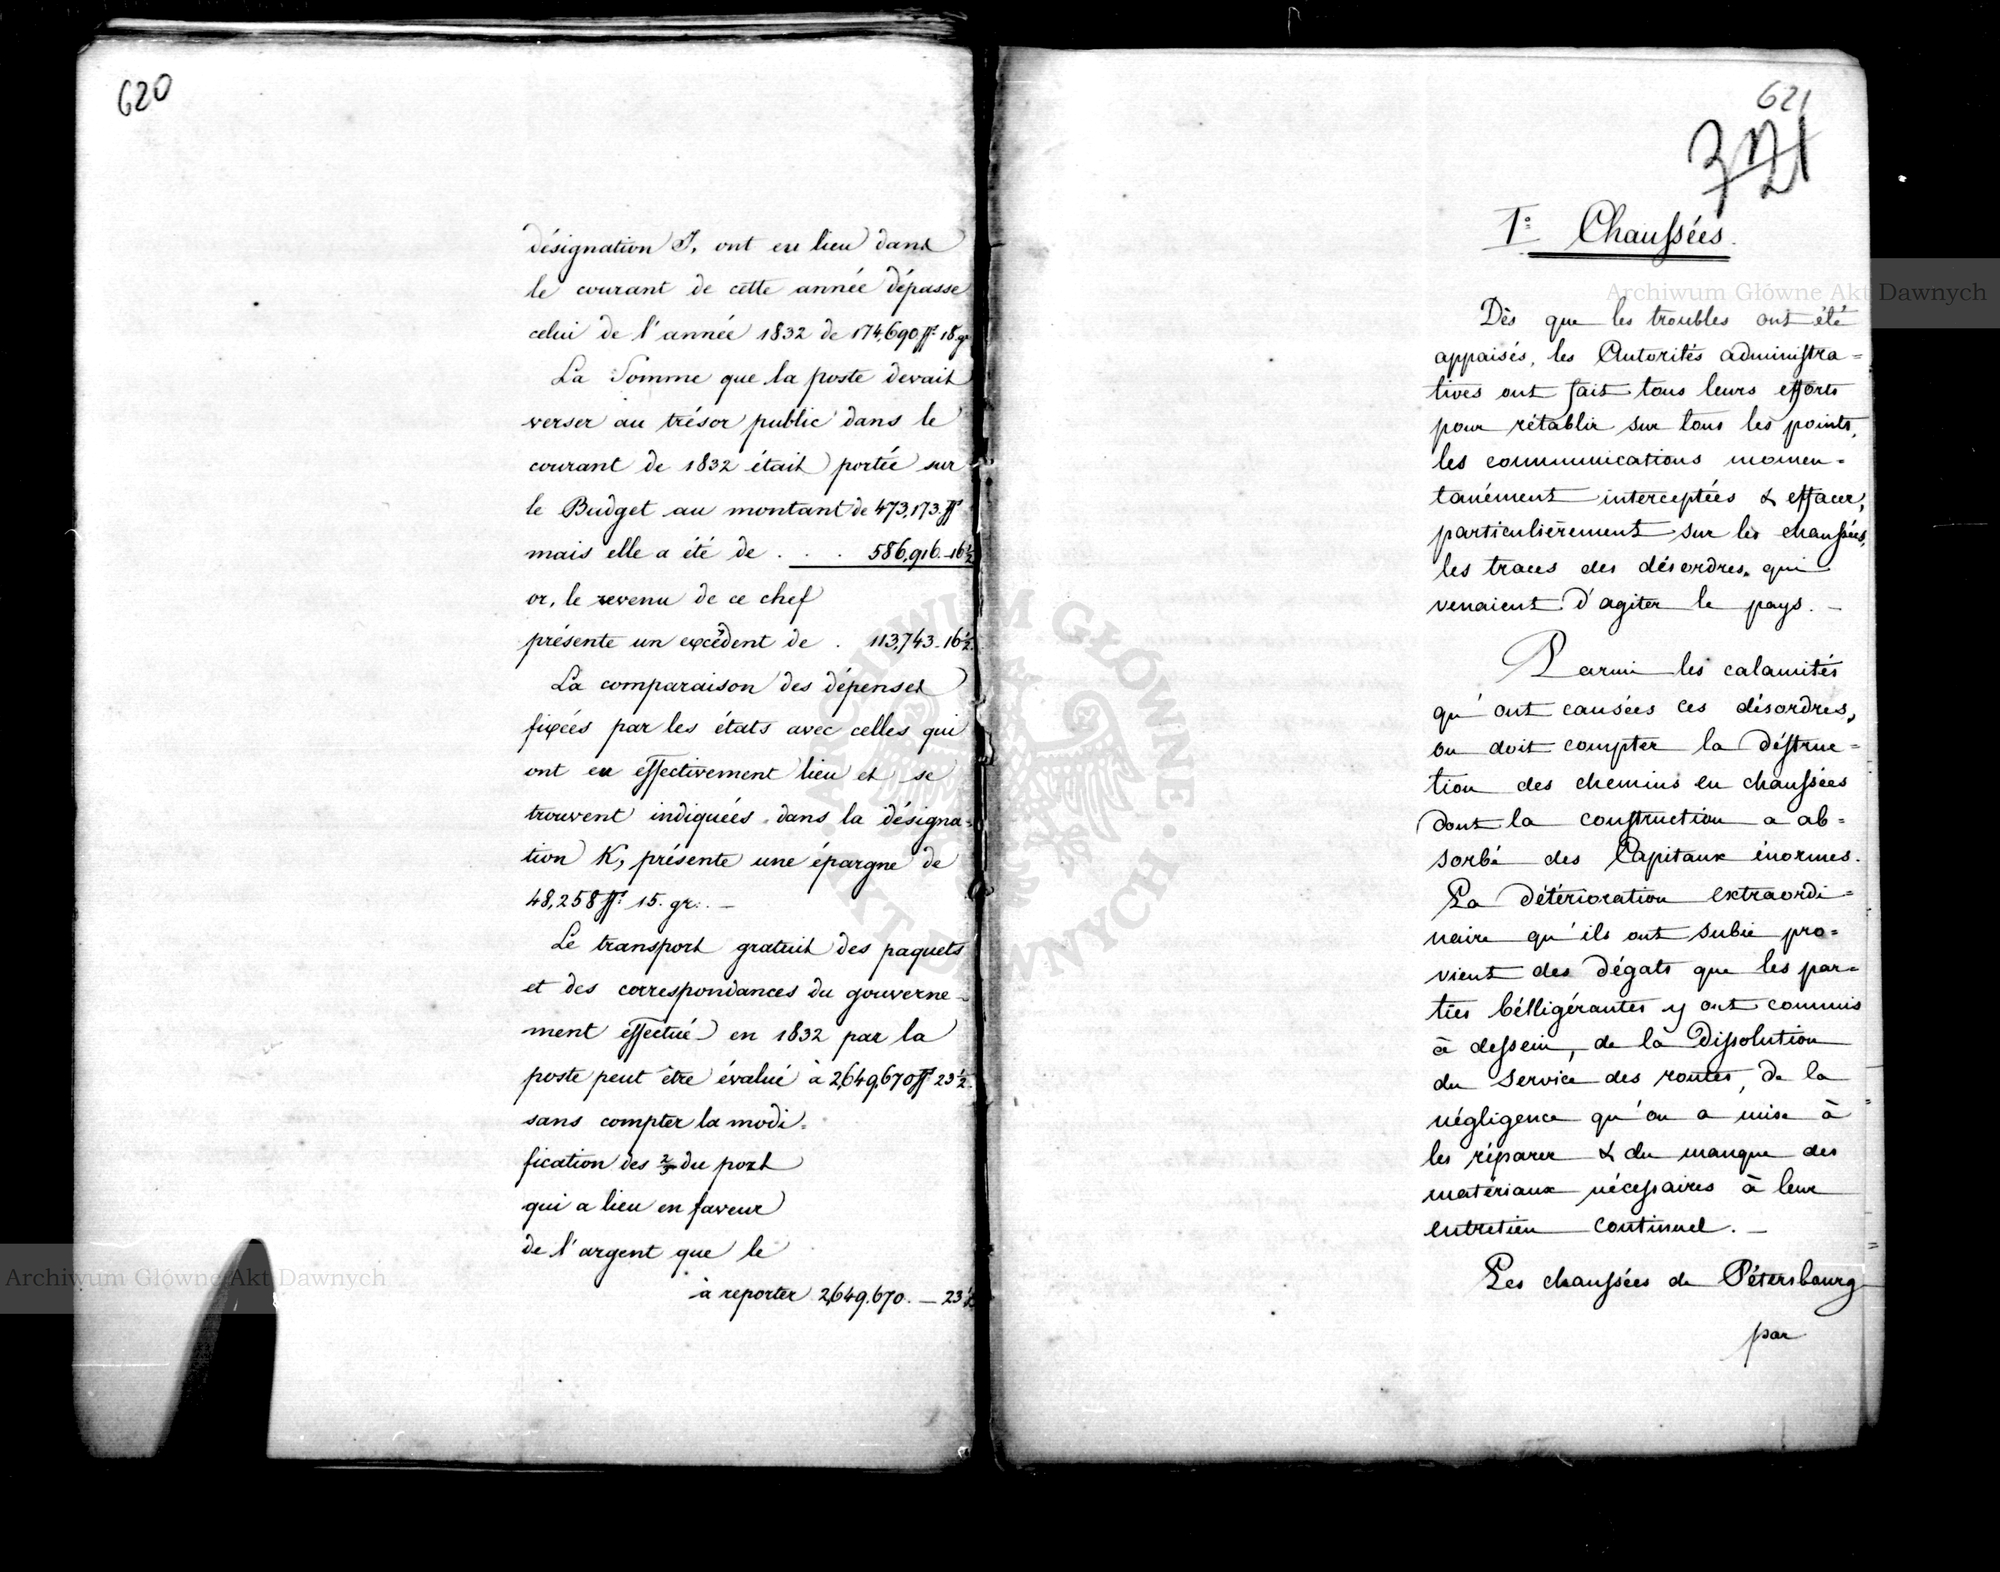 620
désignation J, ont eu lieu dans
le courant de cette année dépasse
celui de l'année 1832 de 174,690 ff. 18. gr
La Somme que la poste devait
verser au trésor public dans le
courant de 1832 était portée sur
le Budget au montant de 473,173. ff
mais elle a été de . . . 586,916.-16½
or, le revenu de ce chef
présente un excédent de . 113,743-16½.
La comparaison des dépenses
fixées par les états avec celles qui
ont eu effectivement lieu et se
trouvent indiquées dans la désigna=
tion K, présente une épargne de
48,258 ff. 15. gr. . —
Le transport gratuit des paquets
et des correspondances du gouverne-
ment effectué en 1832 par la
poste peut être évalué à 2,649,670 ff 23½.
sans compter la modi=
fication des ⅔ du port
qui a lieu en faveur
de l'argent que le
à reporter 2,649,670. — 23½
621
1º Chaussées.
Dès que les troubles ont été
appaisés, les Autorités administra=
tives ont fait tous leurs efforts
pour rétablir sur tous les points,
les communications momen=
tanément interceptées & effacer,
particulièrement sur les chaussées,
les traces des désordres, qui
venaient d'agiter le pays. —
Parmi les calamités
qu'ont causées ces désordres,
on doit compter la déstruc=
tion des chemins en chaussées
dont la construction a ab=
sorbé des Capitaux énormes.
La détérioration extraordi=
naire qu'ils ont subie pro=
vient des dégats que les par=
ties bélligérantes y ont commis
à dessein, de la Dissolution
du Service des routes, de la
négligence qu'on a mise à
les réparer & du manque des
matériaux nécessaires à leur
entretien continuel. —
Les chaussées de Pétersbourg
par
Archiwum Główne Akt Dawnych
Archiwum Główne Akt Dawnych
ARCHIWUM GŁÓWNE · AKT DAWNYCH ·